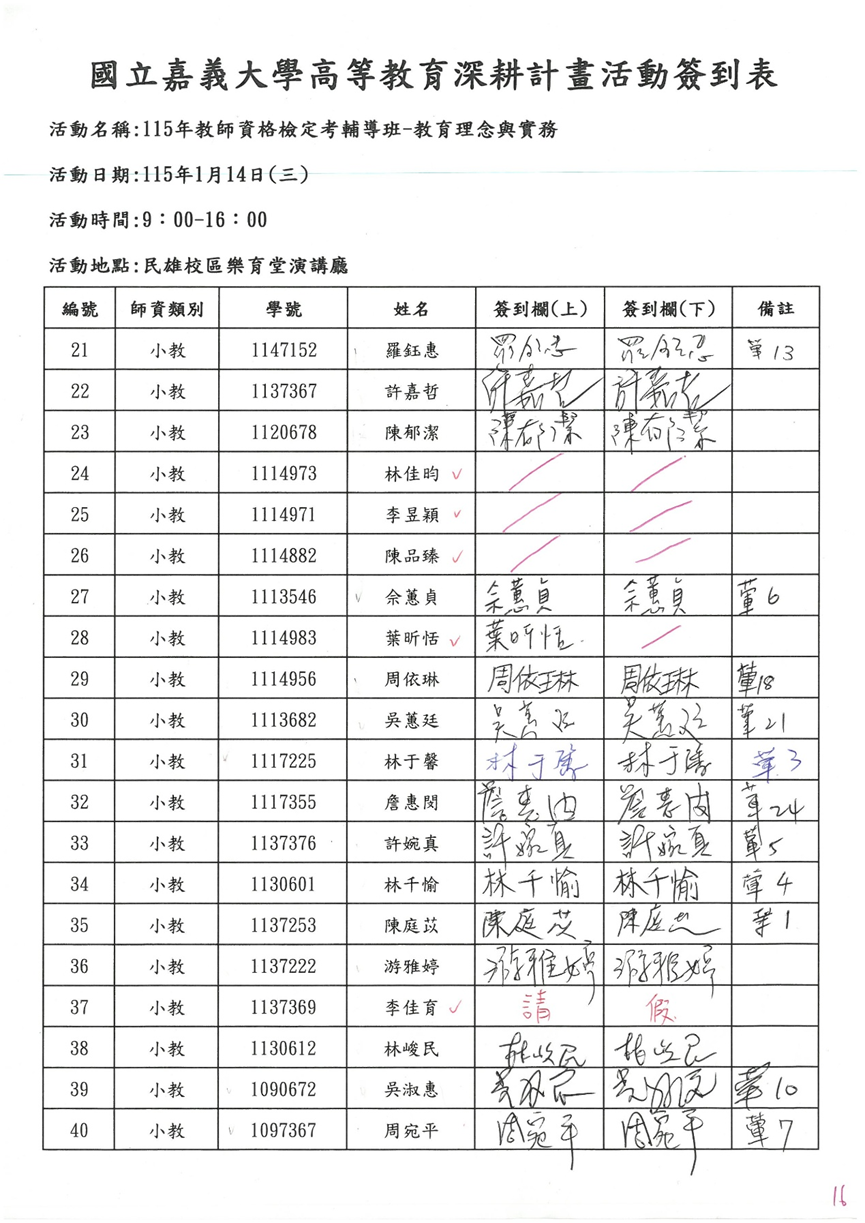 國立嘉義大學高等教育深耕計畫活動簽到表
活動名稱:115年教師資格檢定考輔導班-教育理念與實務
活動日期:115年1月14日(三)
活動時間:9：00-16：00
活動地點:民雄校區樂育堂演講廳
編號 師資類別 學號 姓名 簽到欄(上) 簽到欄(下) 備註
21 小教 1147152 羅鈺惠 羅鈺惠 羅鈺惠 葷 13
22 小教 1137367 許嘉哲 許嘉哲 許嘉哲
23 小教 1120678 陳郁潔 陳郁潔 陳郁潔
24 小教 1114973 林佳昀 ✓
25 小教 1114971 李昱穎 ✓
26 小教 1114882 陳品臻 ✓
27 小教 1113546 佘蕙貞 佘蕙貞 佘蕙貞 葷 6
28 小教 1114983 葉昕恬 ✓ 葉昕恬
29 小教 1114956 周依琳 周依琳 周依琳 葷 18
30 小教 1113682 吳蕙廷 吳蕙廷 吳蕙廷 葷 21
31 小教 1117225 林于馨 林于馨 林于馨 葷 3
32 小教 1117355 詹惠閔 詹惠閔 詹惠閔 葷 24
33 小教 1137376 許婉真 許婉真 許婉真 葷 5
34 小教 1130601 林千愉 林千愉 林千愉 葷 4
35 小教 1137253 陳庭苡 陳庭苡 陳庭苡 葷 1
36 小教 1137222 游雅婷 游雅婷 游雅婷
37 小教 1137369 李佳育 ✓ 請 假
38 小教 1130612 林峻民 林峻民 林峻民
39 小教 1090672 吳淑惠 吳淑惠 吳淑惠 葷 10
40 小教 1097367 周宛平 周宛平 周宛平 葷 7
16